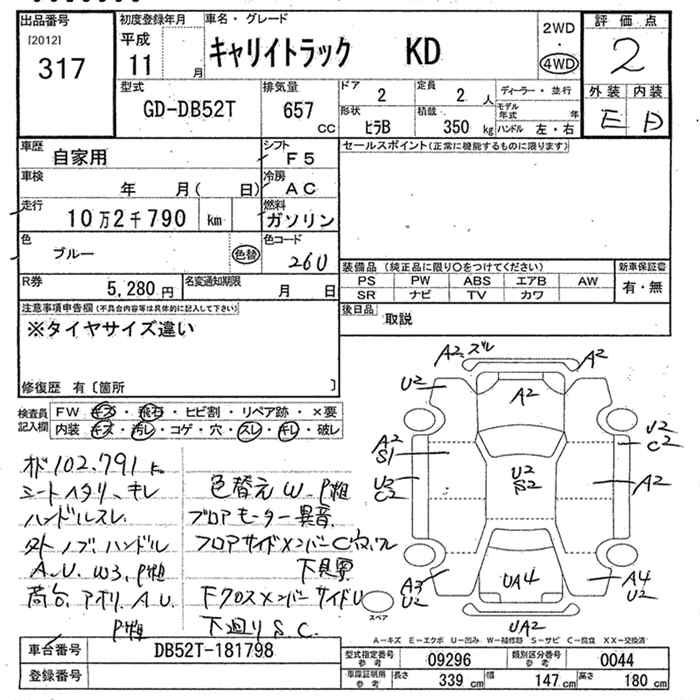 出品番号
[2012]
317
初度登録年月
平成
11 月
車名・グレード
キャリイトラック KD
2WD
・
4WD
評価点
2
外装 内装
E D
型式
GD-DB52T
排気量
657
CC
ドア
2
定員
2 人
形状
ヒラB
積載
350 kg
ディーラー・並行
モデル年式 年
ハンドル 左・右
車歴
自家用
シフト
F5
車検
年 月( 日)
冷房
AC
走行
10万2千790 km
燃料
ガソリン
色
ブルー
色替
色コード
26U
R券
5,280円
名変通知期限
月 日
セールスポイント(正常に機能するものに限ります)
装備品 (純正品に限り○をつけてください)
PS PW ABS エアB AW
SR ナビ TV カワ
新車保証書
有・無
後日品
取説
注意事項申告欄(不具合内容等は具体的に記入して下さい)
※タイヤサイズ違い
修復歴 有〔箇所 〕
検査員
記入欄
FW キズ・飛石・ヒビ割・リペア跡・×要
内装・キズ・汚レ・コゲ・穴・スレ・キレ・破レ
102.791
シートヘタリ、キレ
ハンドルスレ
外ドノブ、ハンドル
A.U. W3, P粗
荷台アオリ A.U.
P粗
色替え W. P粗
ブロアモーター異音
フロアサイドメンバーC穴
下見要
FクロスメンバーサイドU
下廻りS.C.
A2 ズレ
A2
U2
A2
A2
S1
U2
C2
U2
S2
U2
C2
A2
A3
U2
UA4
A4
U2
UA2
スペア
A-キズ E-エクボ U-凹み W-補修跡 S-サビ C-腐食 XX-交換済
車台番号
DB52T-181798
登録番号
型式指定番号
参考
09296
類別区分番号
参考
0044
車庫証明用
参考
長さ
339 cm
幅
147 cm
高さ
180 cm